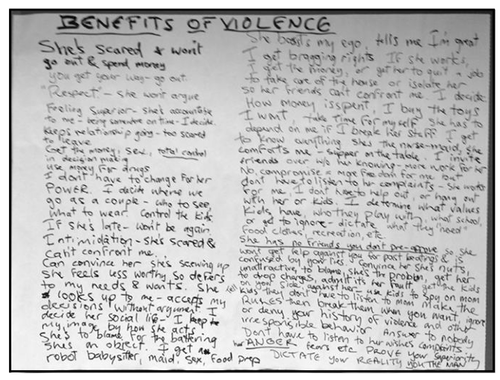 BENEFITS OF VIOLENCE
She's scared & won't
go out & spend money
you get your way - go out
"Respect" - she wont argue
Feeling Superior - she's accountable
to me - being on time, I decide.
Keeps relationship going - too scared
to leave
Get the money, sex, total control
in decision making
use money for drugs
I don't have to change for her
POWER. I decide where we
go as a couple - who to see,
what to wear. Control the kids
If she's late - won't be again
Intimidation - she's scared &
can't confront me.
Can convince her she's screwing up
She feels less worthy so defers
to my needs & wants. She
looks up to me - accepts my
decisions without argument I
decide her social life - I keep
my image by how she acts
She's to blame for the battering
She's an object. I get a
robot babysitter, maid, sex, food prep
She boosts my ego, tells me I'm great
I get bragging rights. If she works,
I get the money, or get her to quit a job
to take care of the house or isolate her
so her friends can't confront me. I decide
How money is spent. I buy the toys
I want, take time for myself she has to
depend on me if I break her stuff I get
to know everything she's the nurse-maid, she
comforts me - supper on the table. I invite
friends over w/o her knowing - more work for her
No compromise = more freedom for me
don't have to listen to her complaints - she works
for me. I don't have to help out or hang out
with her or kids. I determine what values
kids have, who they play with, what school,
or to ignore - dictate what they need
food clothes, recreation etc.
She has no friends you don't pre-approve so she
won't get help against you for past beatings & is
confused by your lies. Convince her she's nuts,
unattractive, to blame, she's the problem, get her
to drop charges, admit its her fault get the kids
on your side against her - use kids to spy on mom
so they don't have to listen to mom. Make the
RULES then break them when you want, ignore
or deny your history of violence and other
irresponsible behavior Answer to nobody
Don't have to listen to her wishes, complaints
ANGER fears etc. PROVE your superiority
DICTATE your REALITY you're THE MAN